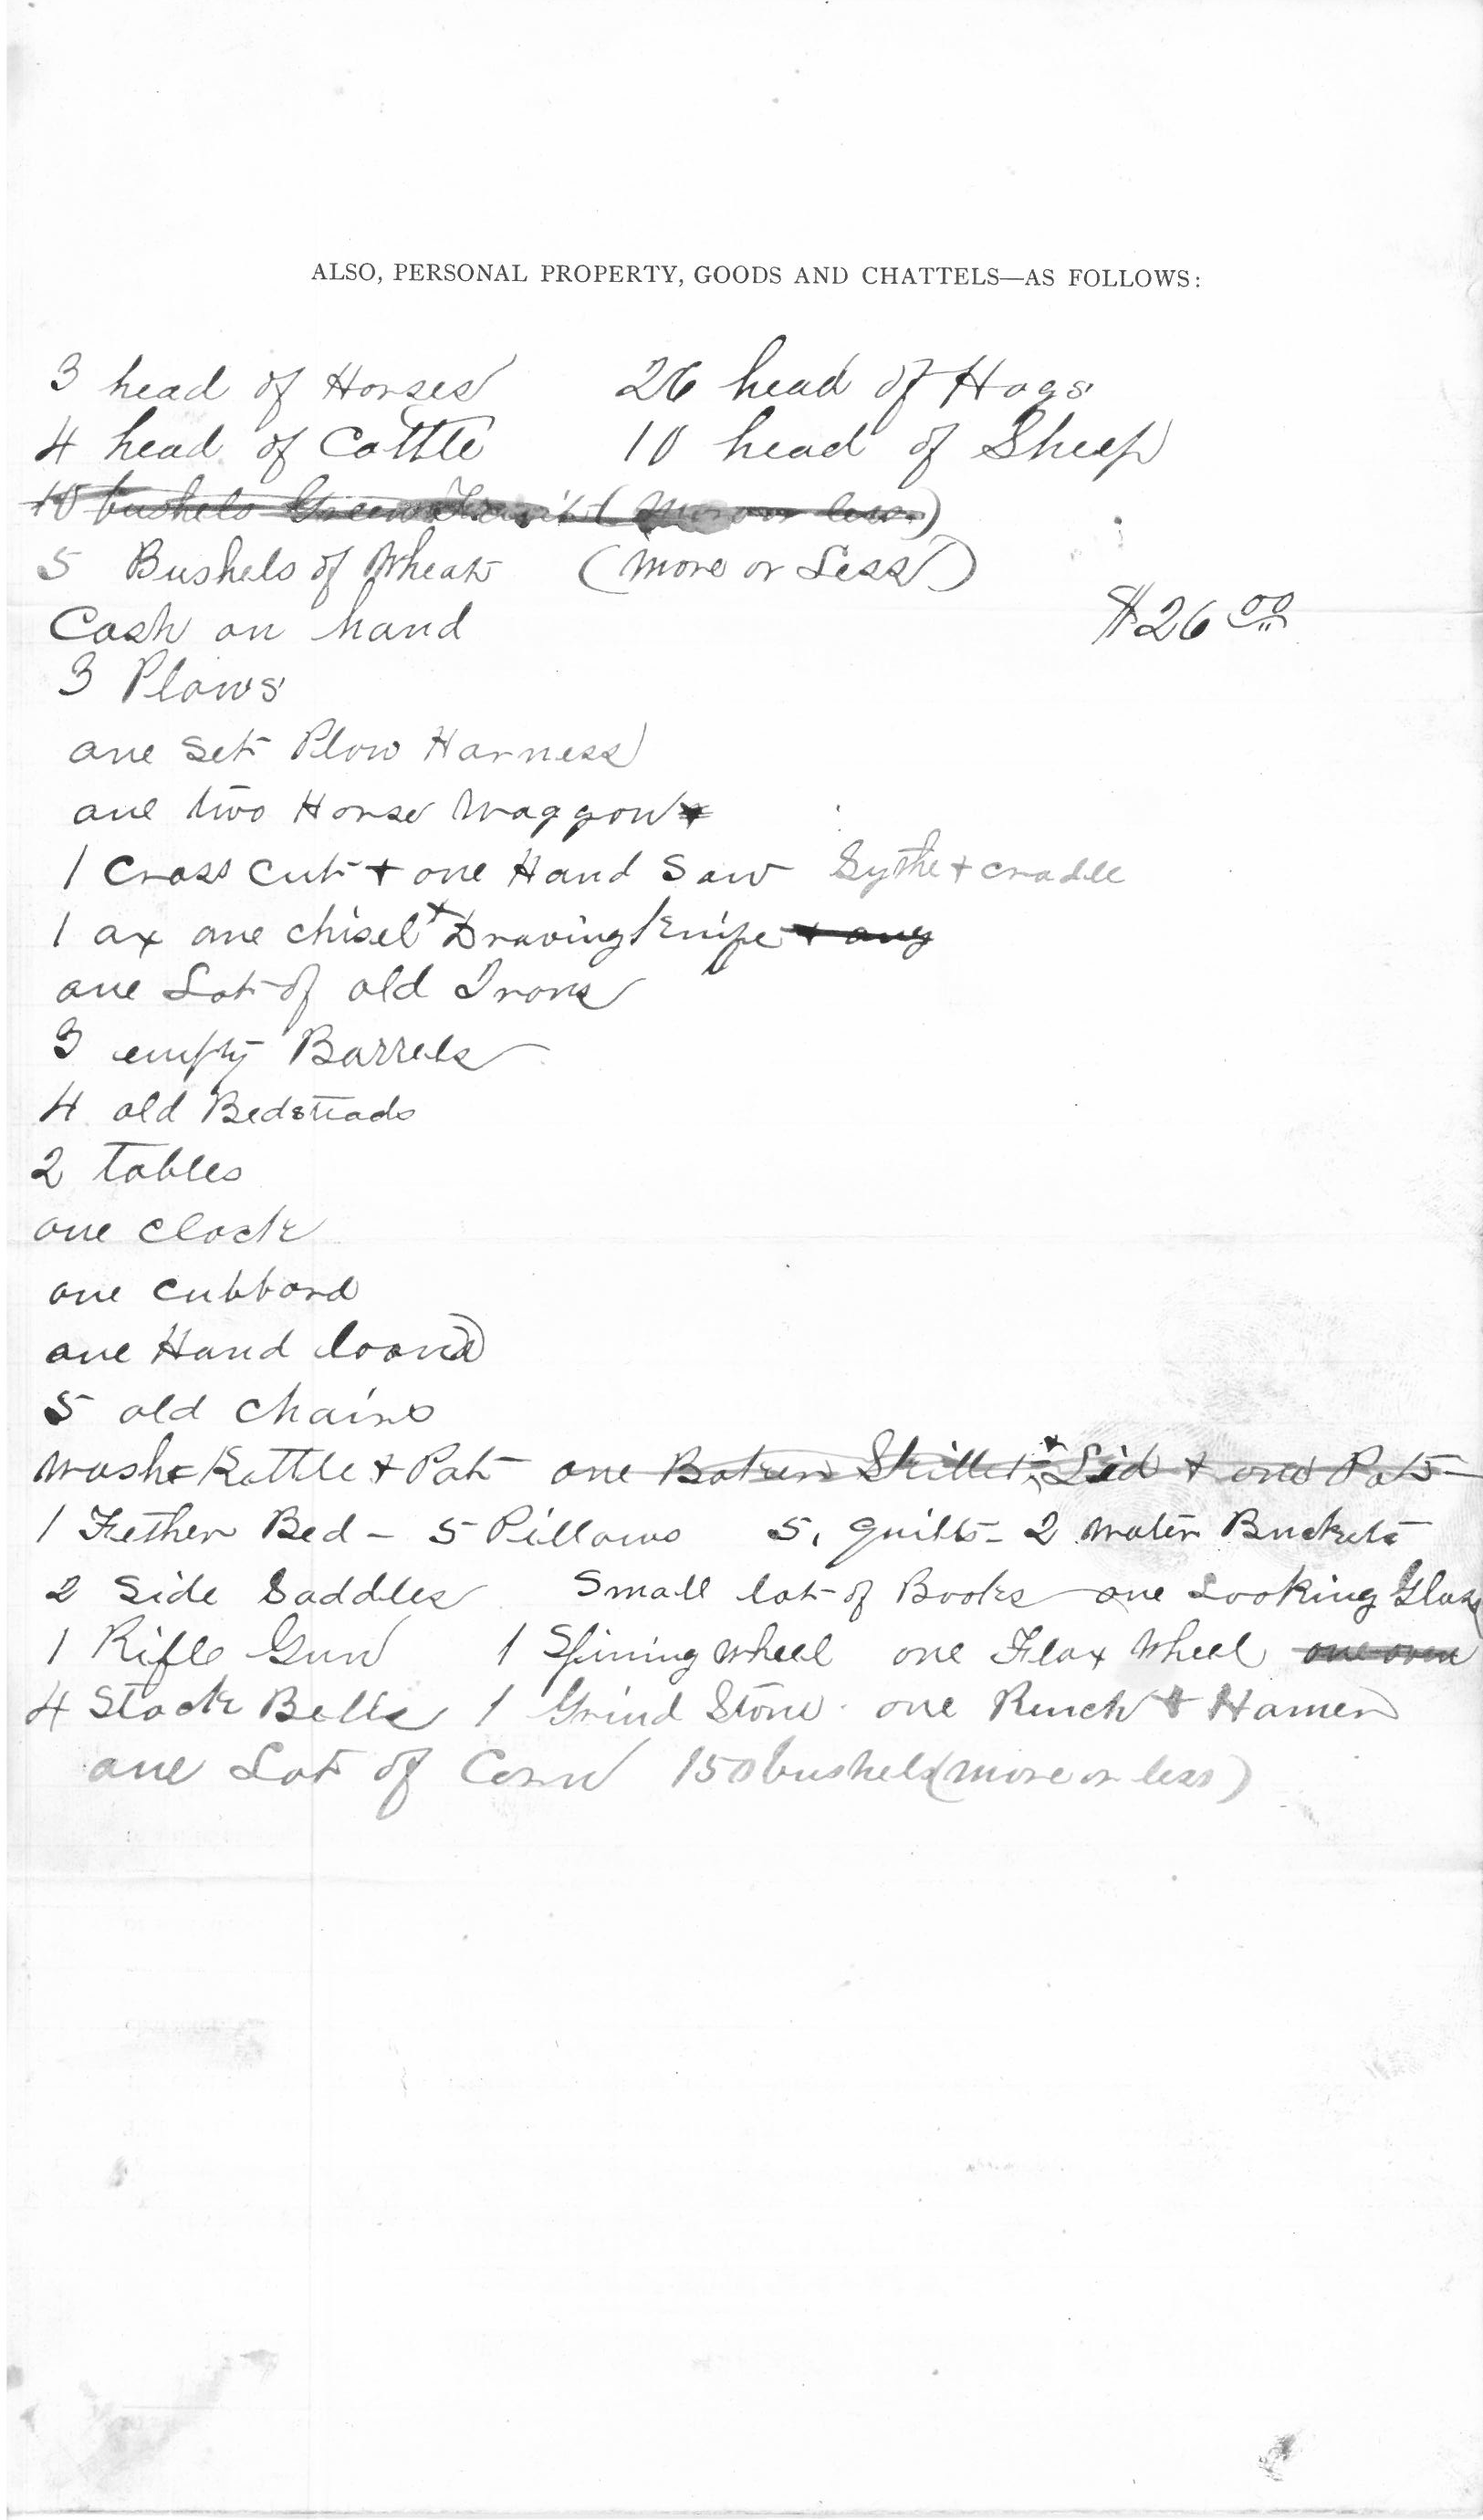 ALSO, PERSONAL PROPERTY, GOODS AND CHATTELS—AS FOLLOWS:
3 head of Horses 26 head of Hogs
4 head of Cattle 10 head of Sheep
10 bushels Green Fruit (More or less)
5 Bushels of Wheat (More or Less)
Cash on hand $26 00
3 Plows
one set Plow Harness
one two Horse Waggon
1 Cross cut + one Hand Saw Sythe + cradle
1 ax one chisel + Drawing Knife + aug
one Lot of old Irons
3 empty Barrels
4 old Bedsteads
2 tables
one clock
one cubbord
one Hand loom
5 old chairs
Wash Kettle + Pot one Baken Skillet + Lid + one Pot
1 Fether Bed - 5 Pillows 5, quilts - 2 water Buckets
2 Side Saddles Small lot of Books one Looking Glass
1 Rifle Gun 1 Spining wheel one Flax Wheel one oven
4 Stock Bells 1 Grind Stone one Rench + Hamer
one Lot of Corn 150 bushels (more or less)